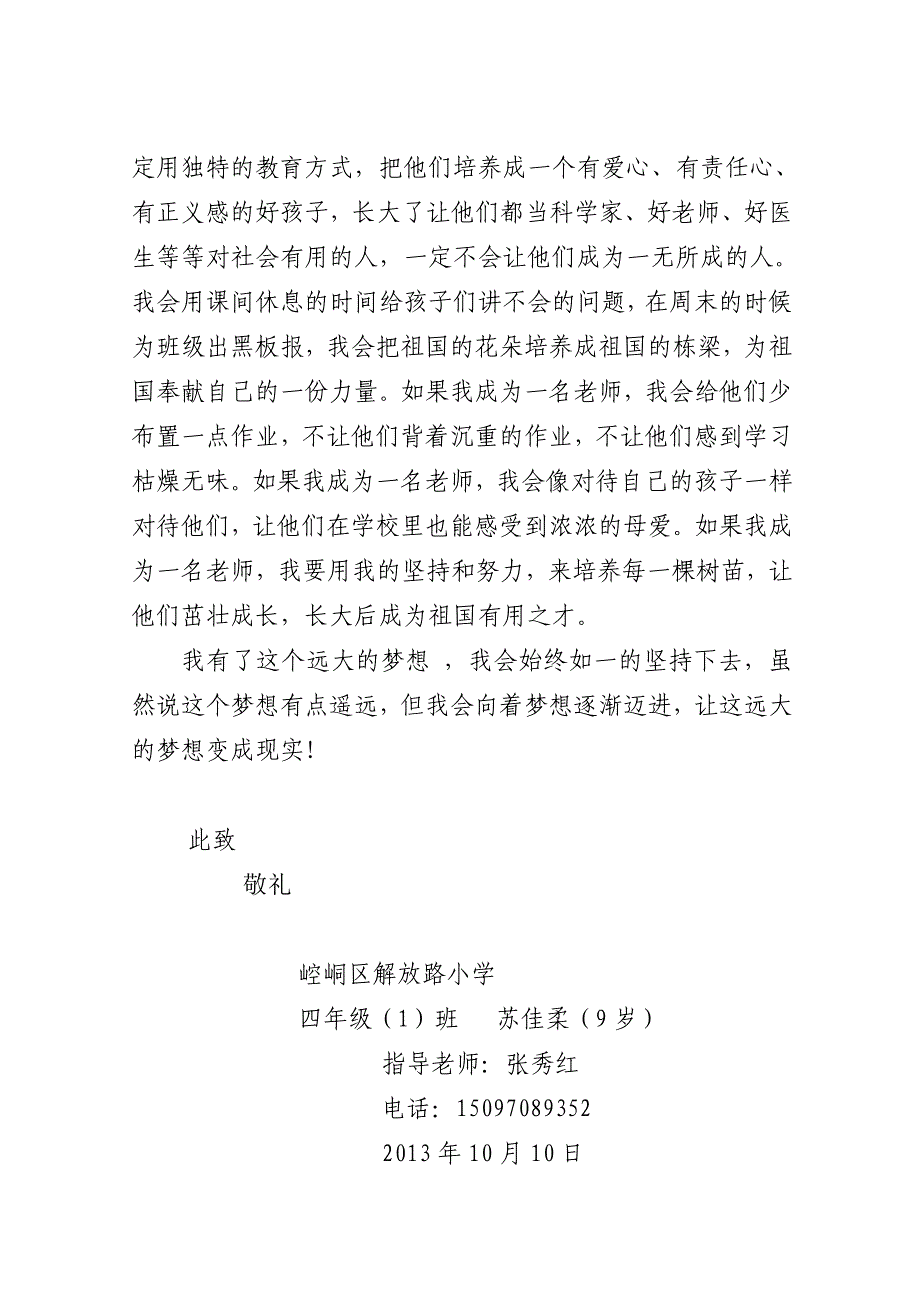 定用独特的教育方式，把他们培养成一个有爱心、有责任心、
有正义感的好孩子，长大了让他们都当科学家、好老师、好医
生等等对社会有用的人，一定不会让他们成为一无所成的人。
我会用课间休息的时间给孩子们讲不会的问题，在周末的时候
为班级出黑板报，我会把祖国的花朵培养成祖国的栋梁，为祖
国奉献自己的一份力量。如果我成为一名老师，我会给他们少
布置一点作业，不让他们背着沉重的作业，不让他们感到学习
枯燥无味。如果我成为一名老师，我会像对待自己的孩子一样
对待他们，让他们在学校里也能感受到浓浓的母爱。如果我成
为一名老师，我要用我的坚持和努力，来培养每一棵树苗，让
他们茁壮成长，长大后成为祖国有用之才。
我有了这个远大的梦想 ，我会始终如一的坚持下去，虽
然说这个梦想有点遥远，但我会向着梦想逐渐迈进，让这远大
的梦想变成现实！
此致
敬礼
崆峒区解放路小学
四年级（1）班 苏佳柔（9岁）
指导老师：张秀红
电话：15097089352
2013年10月10日